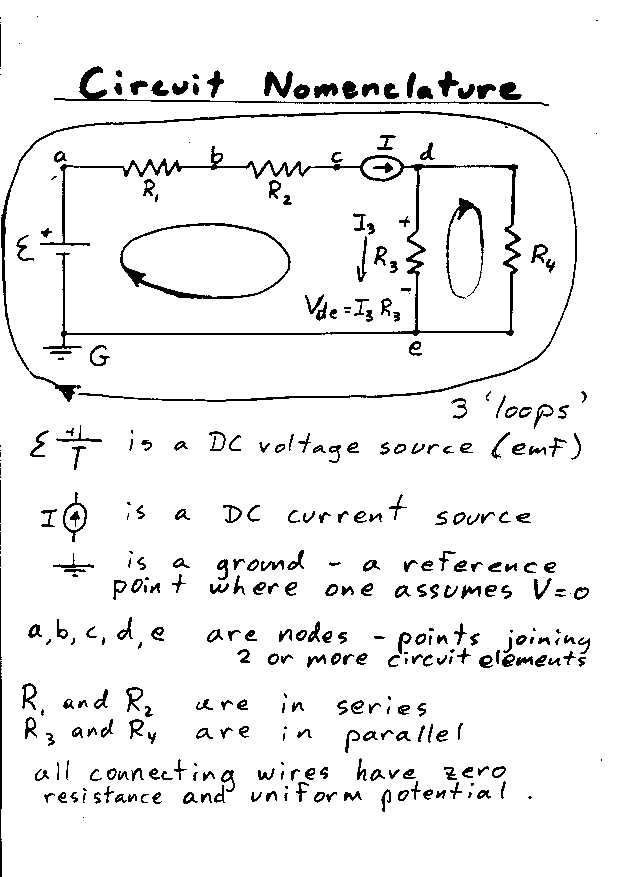 Circuit Nomenclature
a
b
c
I
d
R₁
R₂
ℰ
+
I₃
+
R₃
R₄
Vde = I₃ R₃
-
G
e
3 'loops'
ℰ + is a DC voltage source (emf)
I is a DC current source
is a ground - a reference
point where one assumes V=0
a, b, c, d, e are nodes - points joining
2 or more circuit elements
R₁ and R₂ are in series
R₃ and R₄ are in parallel
all connecting wires have zero
resistance and uniform potential.